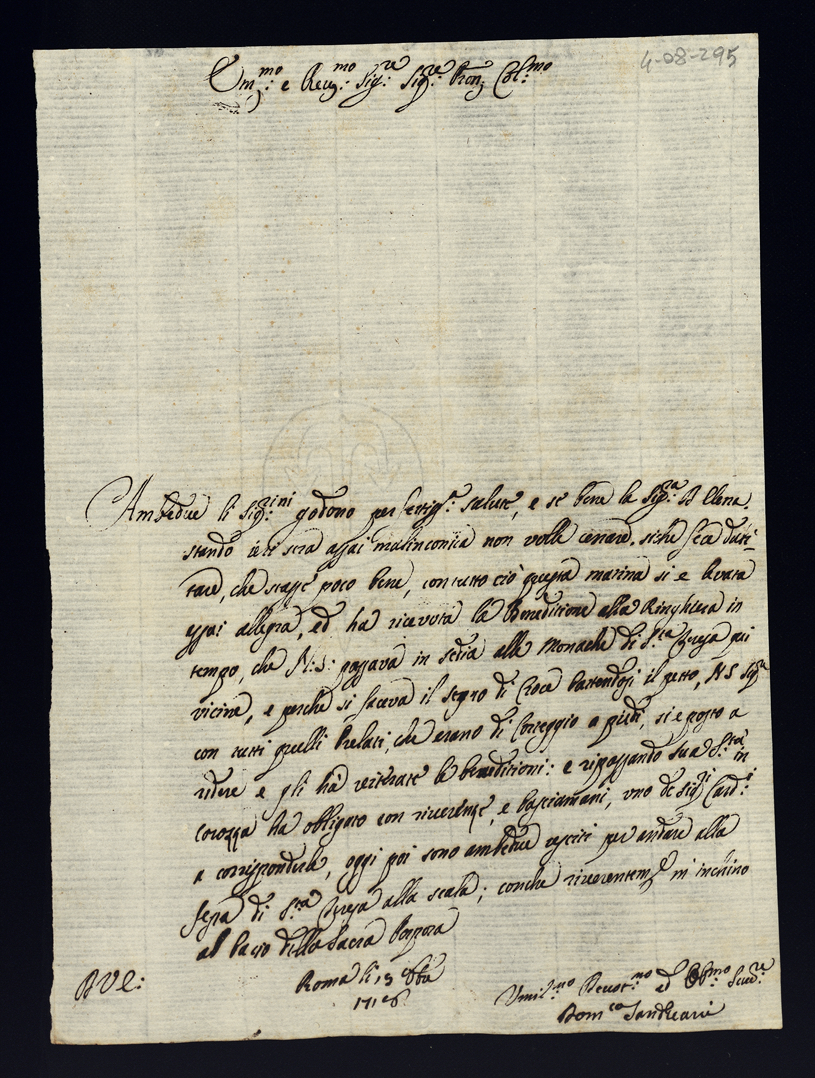 4-08-295
Em.mo e Rev.mo Sig.re Sig.re Pron Col.mo
Ambedue li Sig.rini godono perfettiss.a salute, e se bene la Sig.ra D Elena
stando ieri sera assai malinconica non volle cenare, siche feca dubi-
tare, che stasse poco bene, con tutto ciò questa matina si e levata
assai allegra, ed ha ricevuta la Benedizione alla Ringhiera in
tempo, che N: S: passava in sedia alle Monache di S.ta Teresa qui
vicine, e perche si faceva il segno di Croce battendosi il petto, N S
con tutti quelli Prelati, che erano di Corteggio a piedi, si e posto a
ridere e gli hà reiterate le benedizioni: e ripassando sua S.tà in
corozza ha obligato con riverenze, e basciamani, uno de Sig.ri Card.i
a corrispondere, oggi poi sono ambedue usciti per andare alla
festa di S.ta Teresa alla scala; conche riverentem.e m'inchino
al bacio della Sacra Porpora
Roma li 15 8bre
171
B V E:
Umil.mo Devot.mo ed Obl.mo Serv.re
Dom.co